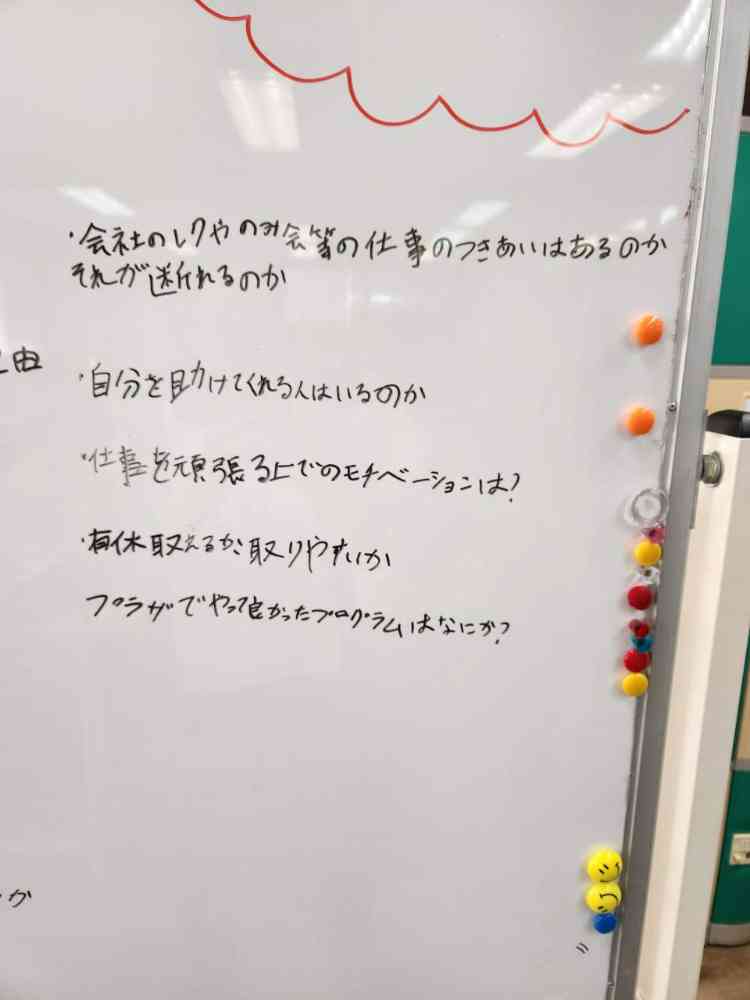 ・会社のレクやのみ会等の仕事のつきあいはあるのか
それが断れるのか
由
・自分を助けてくれる人はいるのか
・仕事を頑張る上でのモチベーションは?
・有休取えるか、取りやすいか
プラザでやって良かったプログラムはなにか?
か